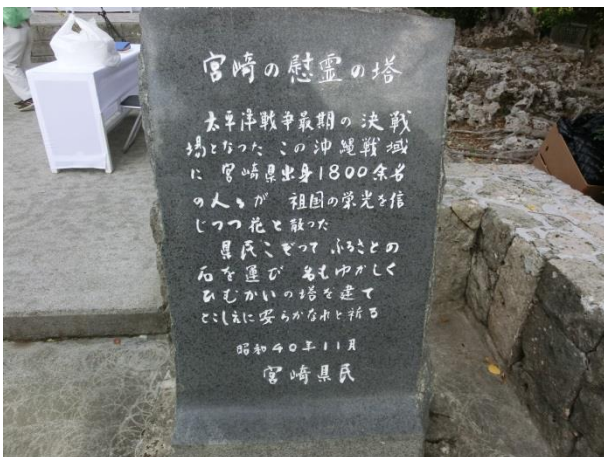 宮崎の慰霊の塔
太平洋戦争最期の決戦
場となった この沖縄戦域
に 宮崎県出身1800余名
の人々が 祖国の栄光を信
じつつ花と散った
県民こぞって ふるさとの
石を運び 名もゆかしく
ひむかいの塔を建て
とこしえに安らかなれと祈る
昭和40年11月
宮崎県民